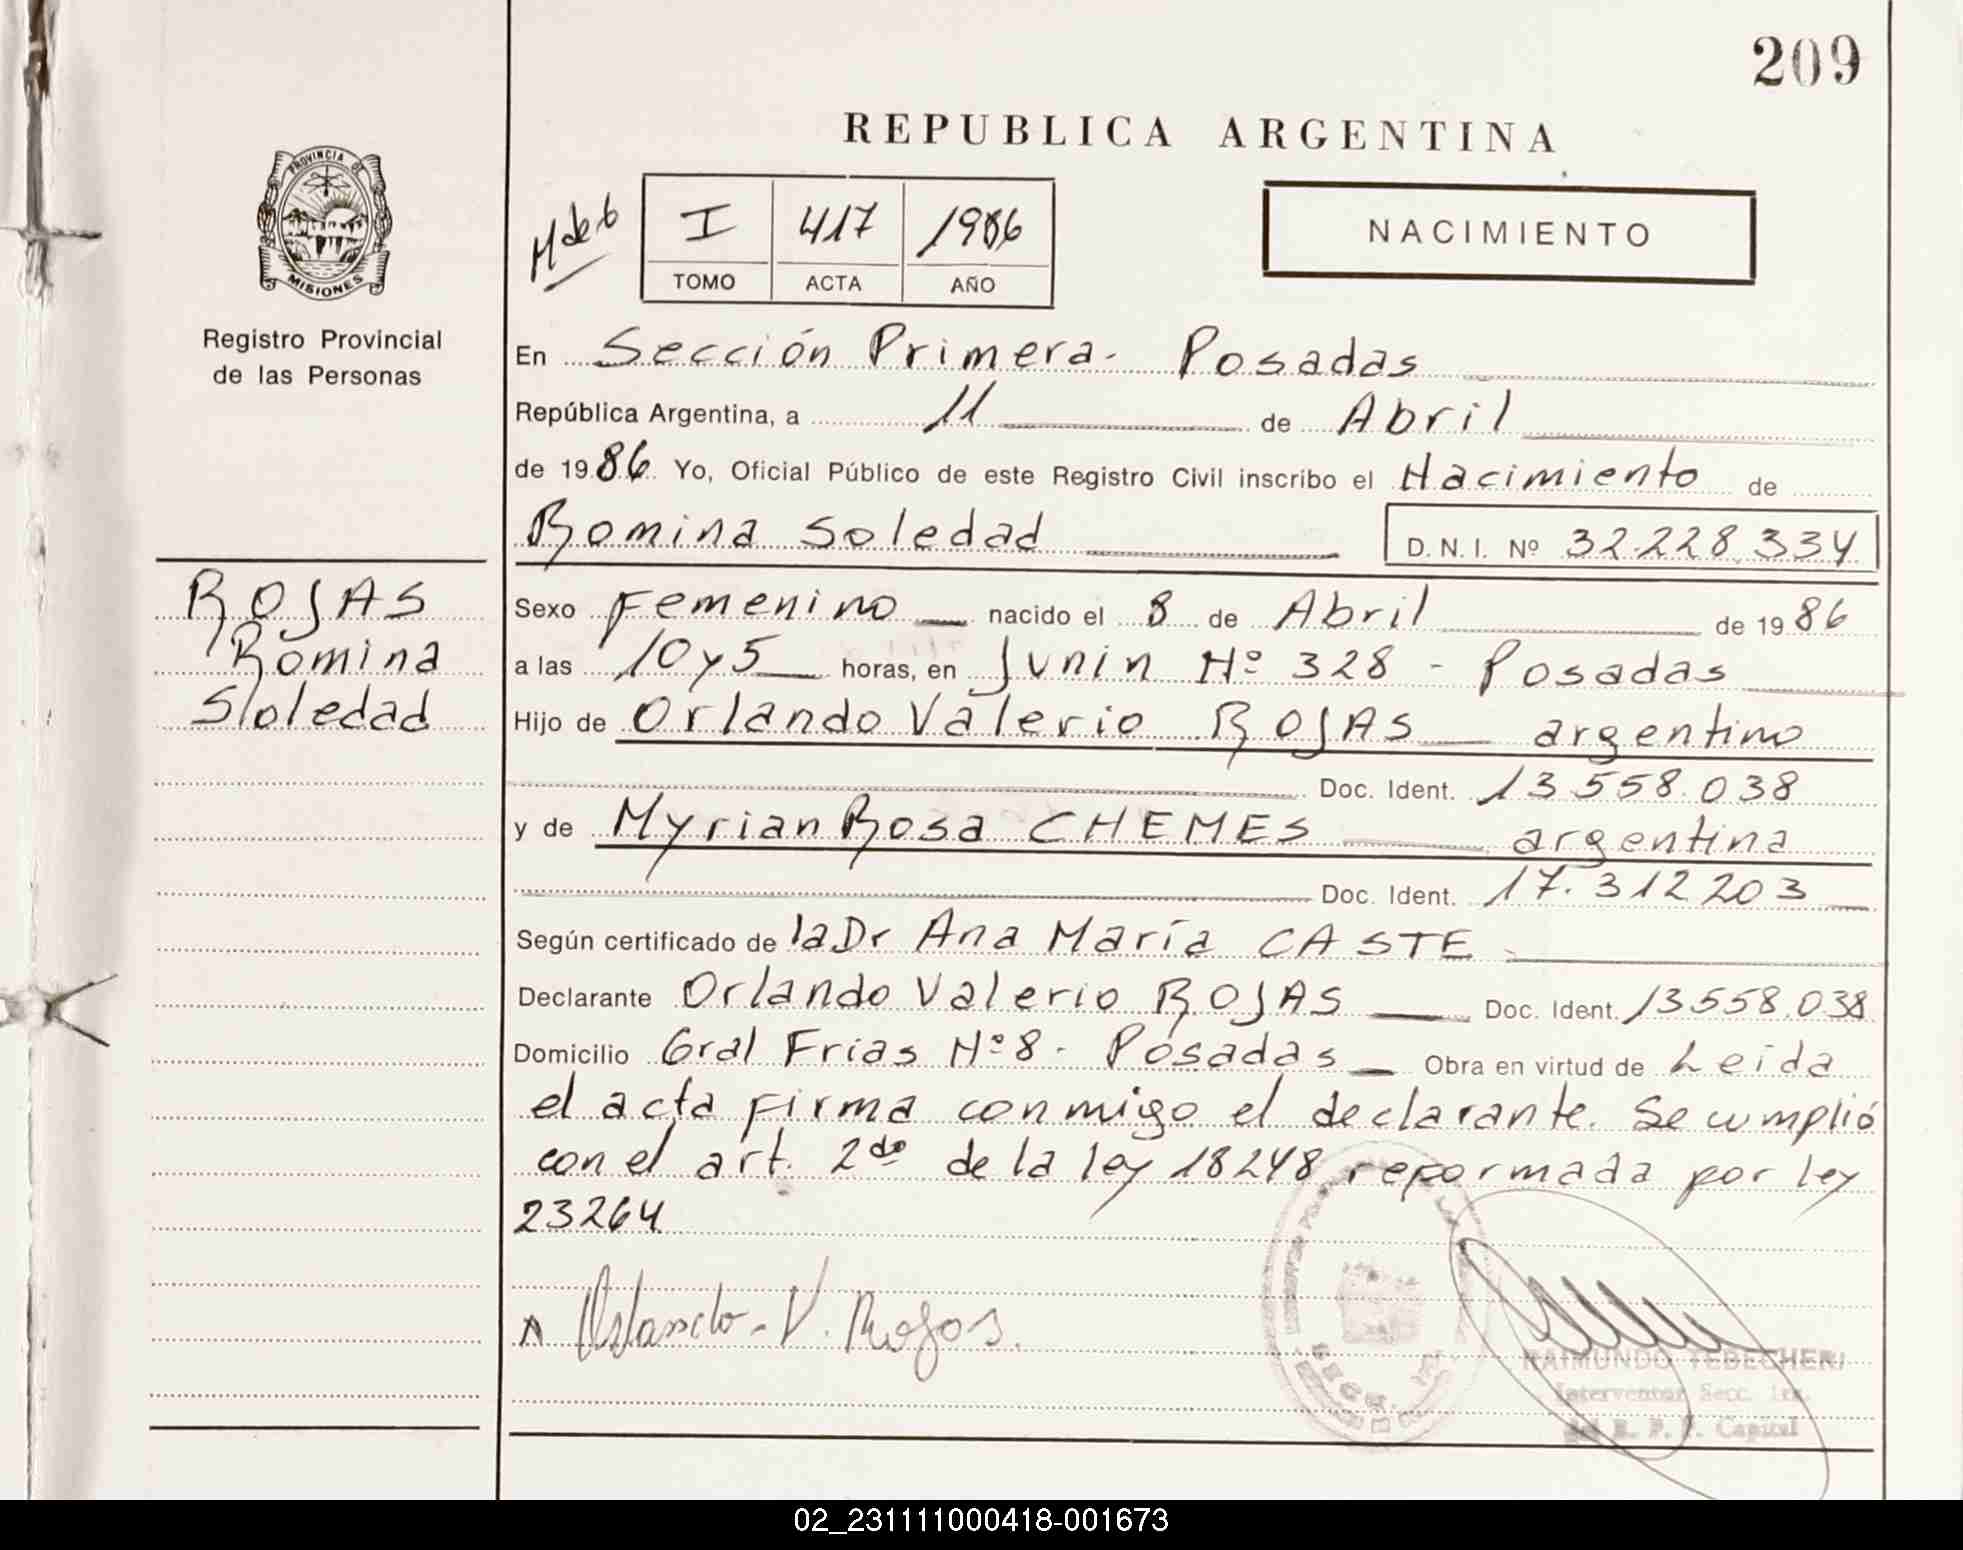 209
REPUBLICA ARGENTINA
PROVINCIA DE
MISIONES
Registro Provincial
de las Personas
H de 6
I 417 1986
TOMO ACTA AÑO
NACIMIENTO
En Sección Primera- Posadas
República Argentina, a 11 de Abril
de 1986 Yo, Oficial Público de este Registro Civil inscribo el Nacimiento de
Romina Soledad D. N. I. Nº 32.228.334
ROJAS
Romina
Soledad
Sexo Femenino nacido el 8 de Abril de 1986
a las 10 y 5 horas, en Junin Nº 328 - Posadas
Hijo de Orlando Valerio ROJAS argentino
Doc. Ident. 13.558.038
y de Myrian Rosa CHEMES argentina
Doc. Ident. 17.312203
Según certificado de la Dr Ana María CASTE
Declarante Orlando Valerio ROJAS Doc. Ident. 13558.038
Domicilio Gral Frias Nº 8- Posadas Obra en virtud de Leida
el acta firma conmigo el declarante. Se cumplió
con el art. 2do de la ley 18248 reformada por ley
23264
Orlando-V. Rojas.
RAIMUNDO TEBECHERI
Interventor Secc. 1ra.
del R. P. P. Capital
02_231111000418-001673